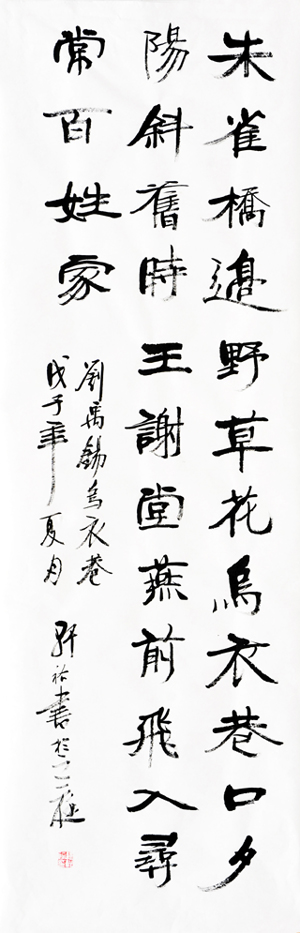 朱雀橋邊野草花烏衣巷口夕
陽斜舊時王謝堂燕前飛入尋
常百姓家
劉禹錫烏衣巷
戊子年夏月
書於